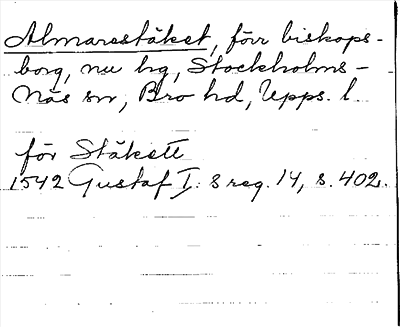 Almarestäket, förr biskops-
borg, nu hg, Stockholms-
Näs sn, Bro hd, Upps. l.
för Stäkett
1542 Gustaf I: s reg. 14, s. 402.